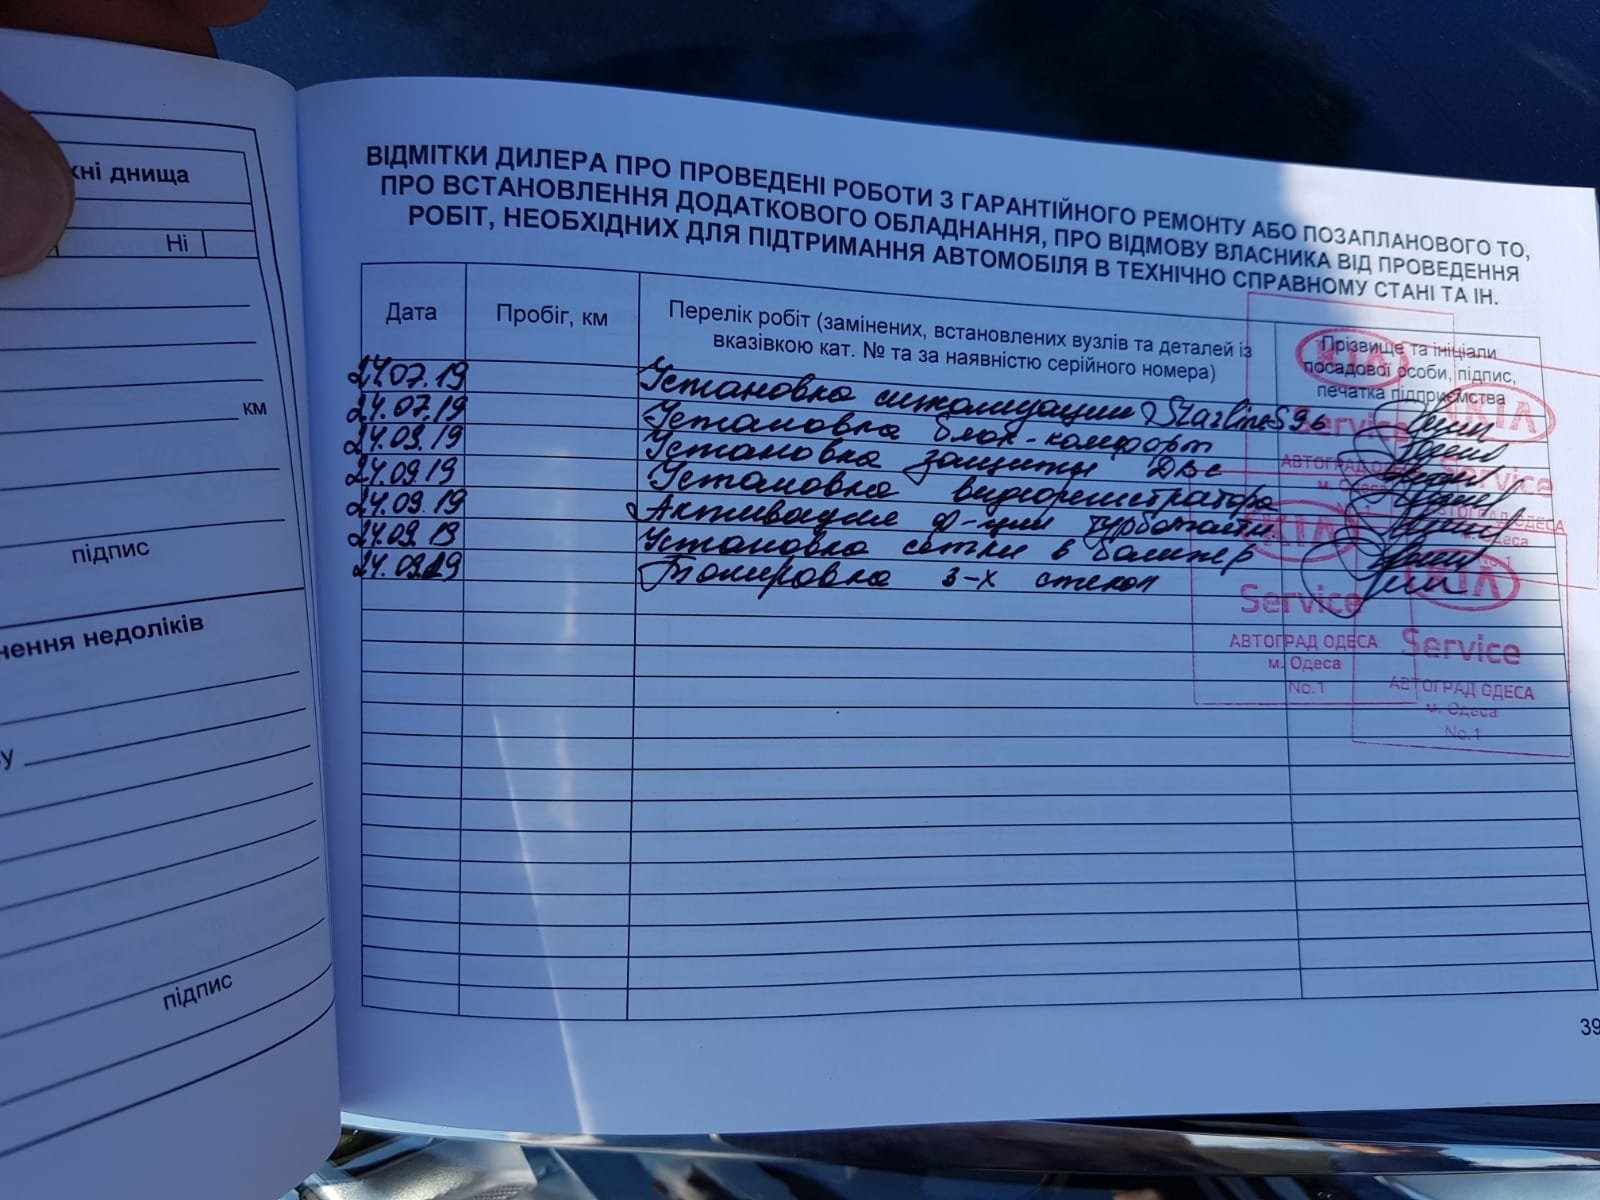 хні днища
Ні
км
підпис
нення недоліків
ву
підпис
ВІДМІТКИ ДИЛЕРА ПРО ПРОВЕДЕНІ РОБОТИ З ГАРАНТІЙНОГО РЕМОНТУ АБО ПОЗАПЛАНОВОГО ТО,
ПРО ВСТАНОВЛЕННЯ ДОДАТКОВОГО ОБЛАДНАННЯ, ПРО ВІДМОВУ ВЛАСНИКА ВІД ПРОВЕДЕННЯ
РОБІТ, НЕОБХІДНИХ ДЛЯ ПІДТРИМАННЯ АВТОМОБІЛЯ В ТЕХНІЧНО СПРАВНОМУ СТАНІ ТА ІН.
Дата
Пробіг, км
Перелік робіт (замінених, встановлених вузлів та деталей із
вказівкою кат. № та за наявністю серійного номера)
Прізвище та ініціали
посадової особи, підпис,
печатка підприємства
24.07.19 Установка сигнализации StarlineS96
24.07.19 Установка блок-комфорт
24.09.19 Установка защиты ДВС
24.09.19 Установка видеорегистратора
24.09.19 Активация ф-ции
24.09.19 Установка сетки в бампер
24.09.19 Тонировка 3-х стекол
KIA
Service
АВТОГРАД ОДЕСА
м. Одеса
No.1
KIA
Service
АВТОГРАД ОДЕСА
м. Одеса
No.1
KIA
Service
АВТОГРАД ОДЕСА
м. Одеса
No.1
KIA
Service
АВТОГРАД ОДЕСА
м. Одеса
No.1
39